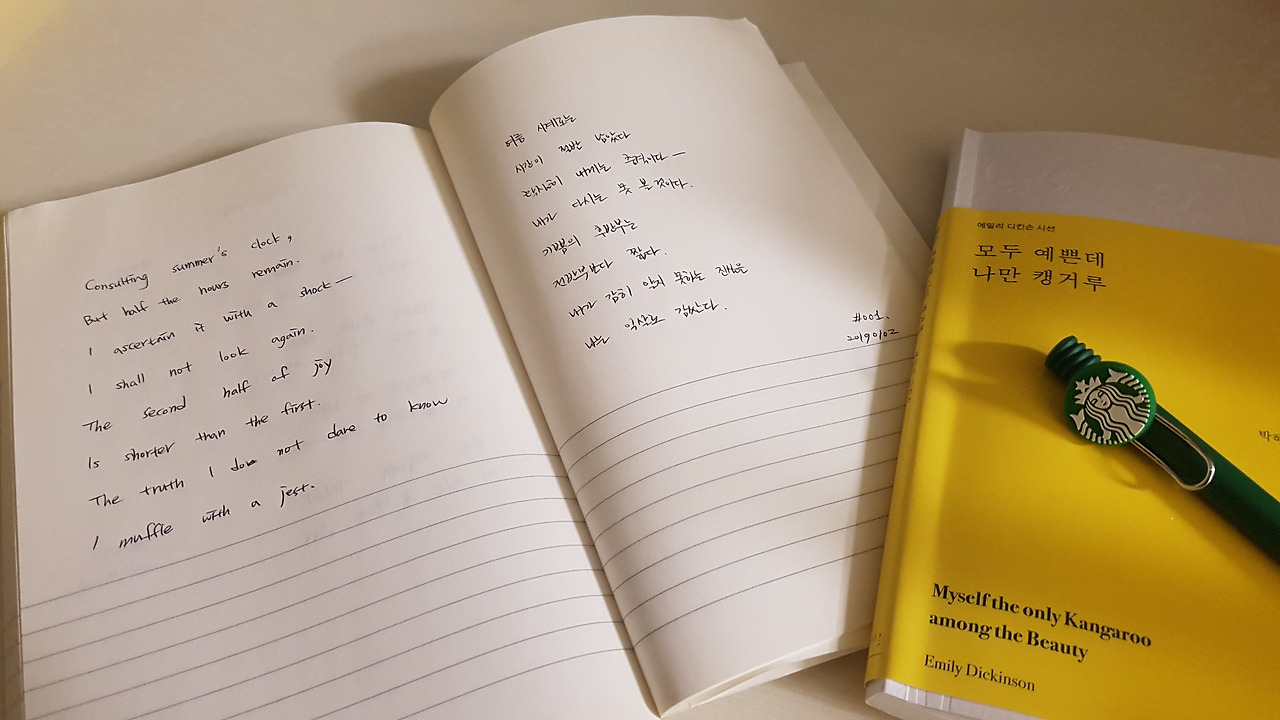 Consulting summer's clock,
But half the hours remain.
I ascertain it with a shock —
I shall not look again.
The second half of joy
Is shorter than the first.
The truth I do not dare to know
I muffle with a jest.
여름 시계로는
시간이 절반 남았다
확실히 내게는 충격이다 —
내가 다시는 못 볼 것이다.
기쁨의 후반부는
전반부보다 짧다.
내가 감히 알지 못하는 진실은
나는 익살로 감싼다.
#001.
20190102
에밀리 디킨슨 시선
모두 예쁜데
나만 캥거루
박혜
Myself the only Kangaroo
among the Beauty
Emily Dickinson